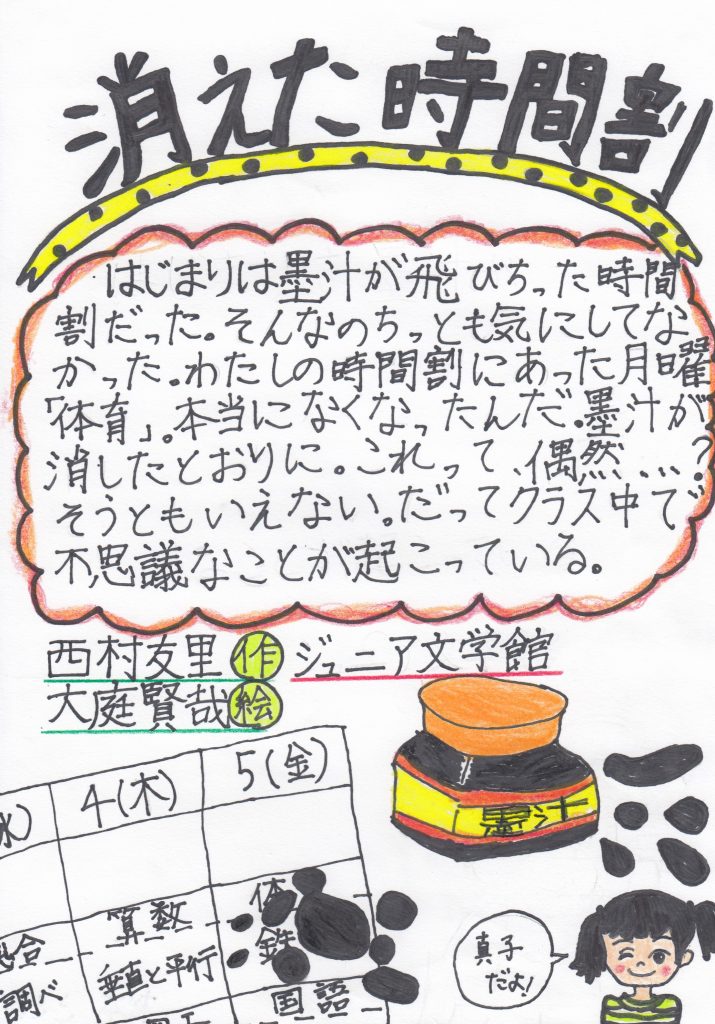 消えた時間割
はじまりは墨汁が飛びちった時間
割だった。そんなのちっとも気にしてな
かった。わたしの時間割にあった月曜
「体育」。本当になくなったんだ。墨汁が
消したとおりに。これって、偶然…?
そうともいえない。だってクラス中で
不思議なことが起こっている。
西村友里 作 ジュニア文学館
大庭賢哉 絵
墨汁
4(木) 5(金)
算数
垂直と平行
体
鉄
調べ
国語
真子
だよ!